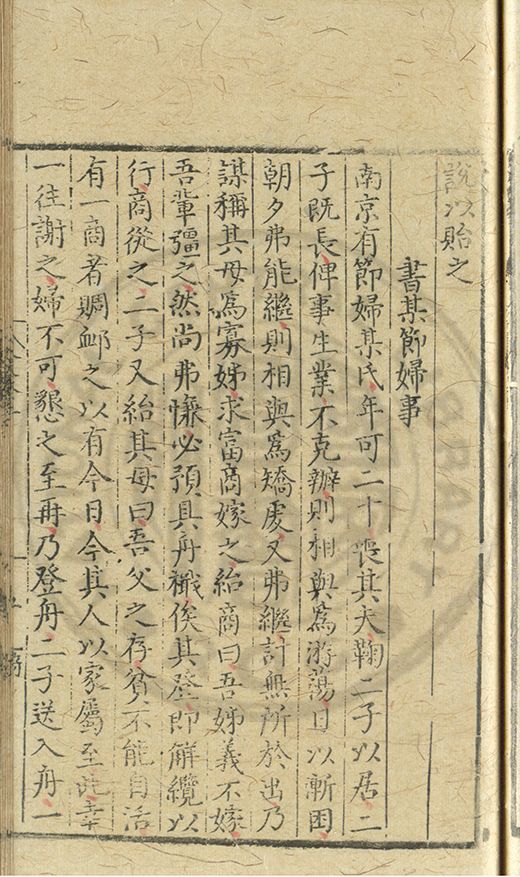 說以貽之
書某節婦事
南京有節婦某氏年可二十喪其夫鞠二子以居二
子既長俾事生業不克辦則相與為游蕩日以漸困
朝夕弗能繼則相與為矯虔又弗繼計無所於出乃
謀稱其母為寡姊求富商嫁之紿商曰吾姊義不嫁
吾輩彊之然尚弗慊必預具舟檥俟其登即解纜以
行商從之二子又紿其母曰吾父之存貧不能自活
有一商者賙卹之以有今日今其人以家屬至此幸
一往謝之婦不可懇之至再乃登舟二子送入舟一